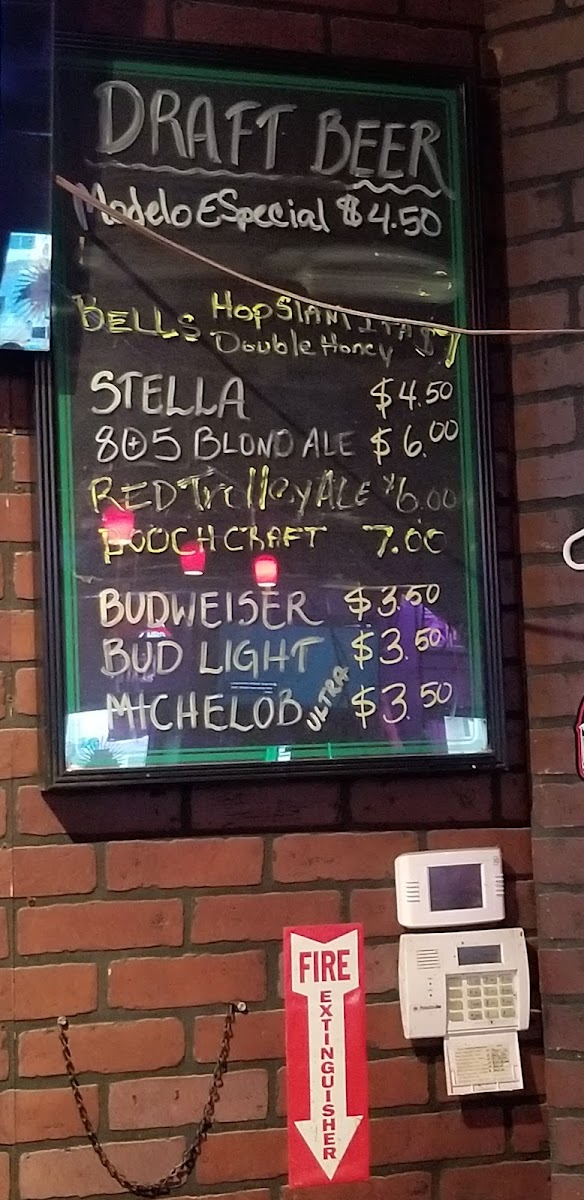 DRAFT BEER
Modelo ESpecial $4.50
BELLS HopSlam IPA $7
Double Honey
STELLA $4.50
805 BLOND ALE $6.00
RED Trolley ALE $6.00
BOOCHCRAFT 7.00
BUDWEISER $3.50
BUD LIGHT $3.50
MICHELOB ULTRA $3.50
FIRE
EXTINGUISHER